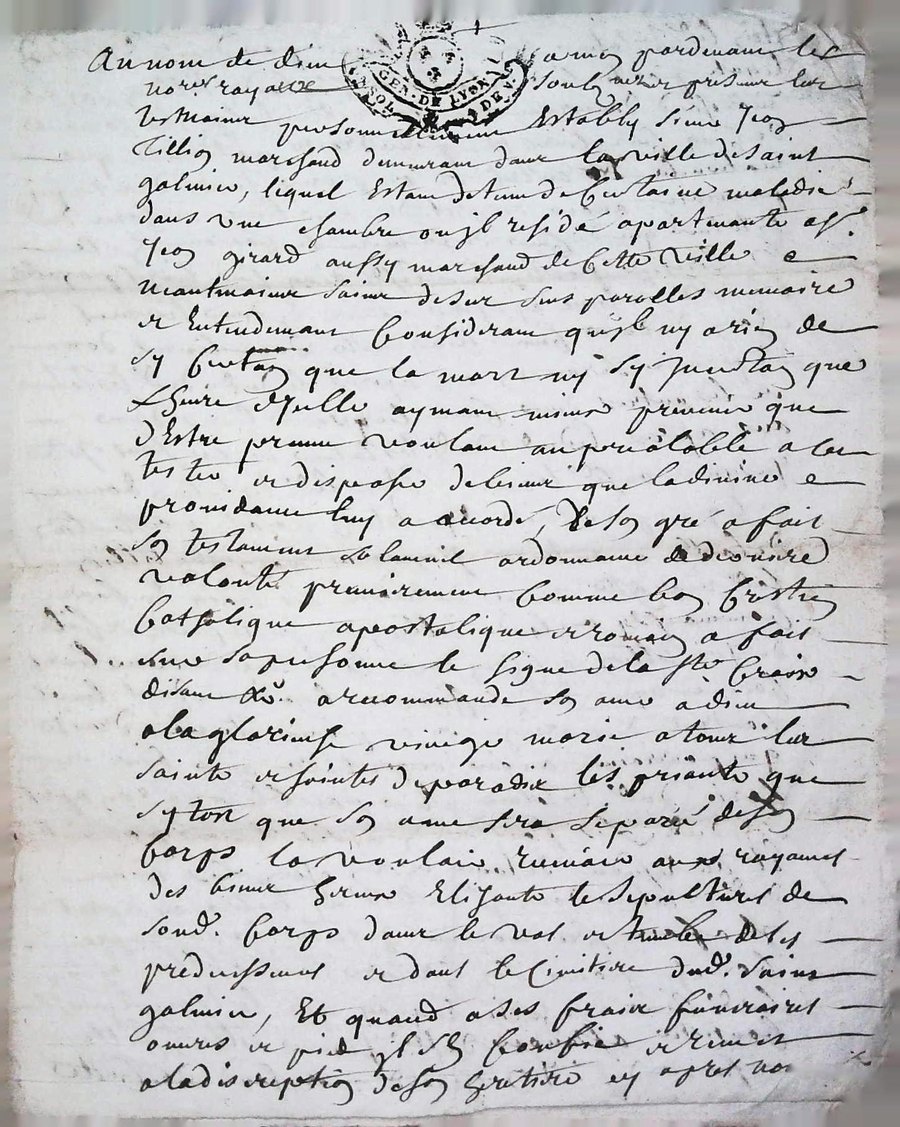 Au nom de dieu amen pardevant les
GEN. DE LYON
SOL DEN.
nores royaux soubsnez et presens les
tesmoins personnellement Estably sieur Jean
Tillion marchand demeurant dans la ville de Saint
galmier, lequel Estant detenu de Certaine maladie
dans une chambre ou jl reside apartenante a sr.
Jean girard aussy marchand de Cette ville e
neantmoins saint de ses sens parolles memoire
et Entendement Considerant qujl ny a rien de
sy Certain que la mort ny sy Jncertain que
Lheure dJcelle aymant mieux prevenir que
dEstre prevenu voulant au prealable a
tester et disposer de biens que la divine e
providance luy a accordé, de son gré a fait
son testament solennel ordonnance de derniere
volonté premierement Comme bon Crestien
Catholique apostolique et romain a fait
sur sa personne le signe de la ste Croix
disant a recommandé son ame a dieu
a la glorieuse vierge marie a tous les
saints et saintes de paradix les priants que
sytost que son ame sera separée de son
Corps la vouloir recevoir aux royaumes
des bienheureux Elisante le sepultures de
sond. Corps dans le vas et tombe de ses
predecesseurs et dans le Cimitiere dud. Saint
galmier, Et quand a ses fraix funeraires
œuvres et pied jl sEn Confie et remet
a la discreption de son heritiere cy apres no